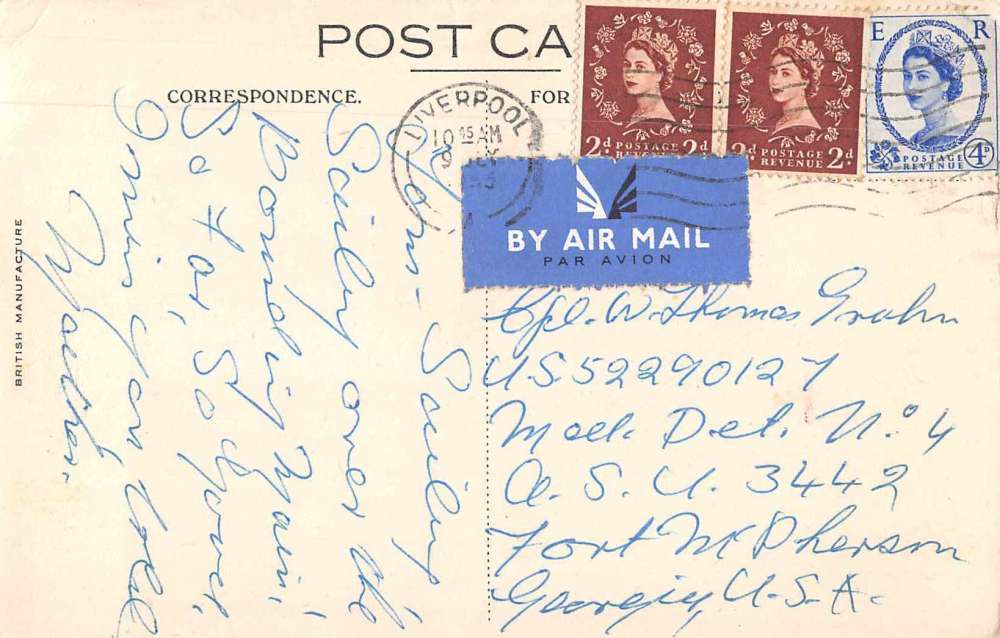 POST CA
CORRESPONDENCE.
FOR
BRITISH MANUFACTURE
LIVERPOOL
10 45 AM
9
2d POSTAGE REVENUE 2d
2d POSTAGE REVENUE 2d
E R
POSTAGE REVENUE 4D
BY AIR MAIL
PAR AVION
Tom - Sailing
Saily over the
Bounding Main!
So far, so good.
you told
Mother.
Cpl. W. Thomas Grahn
US 52290127
Med. Det. No. 4
A. S. U. 3442
Fort McPherson
Georgia, U.S.A.